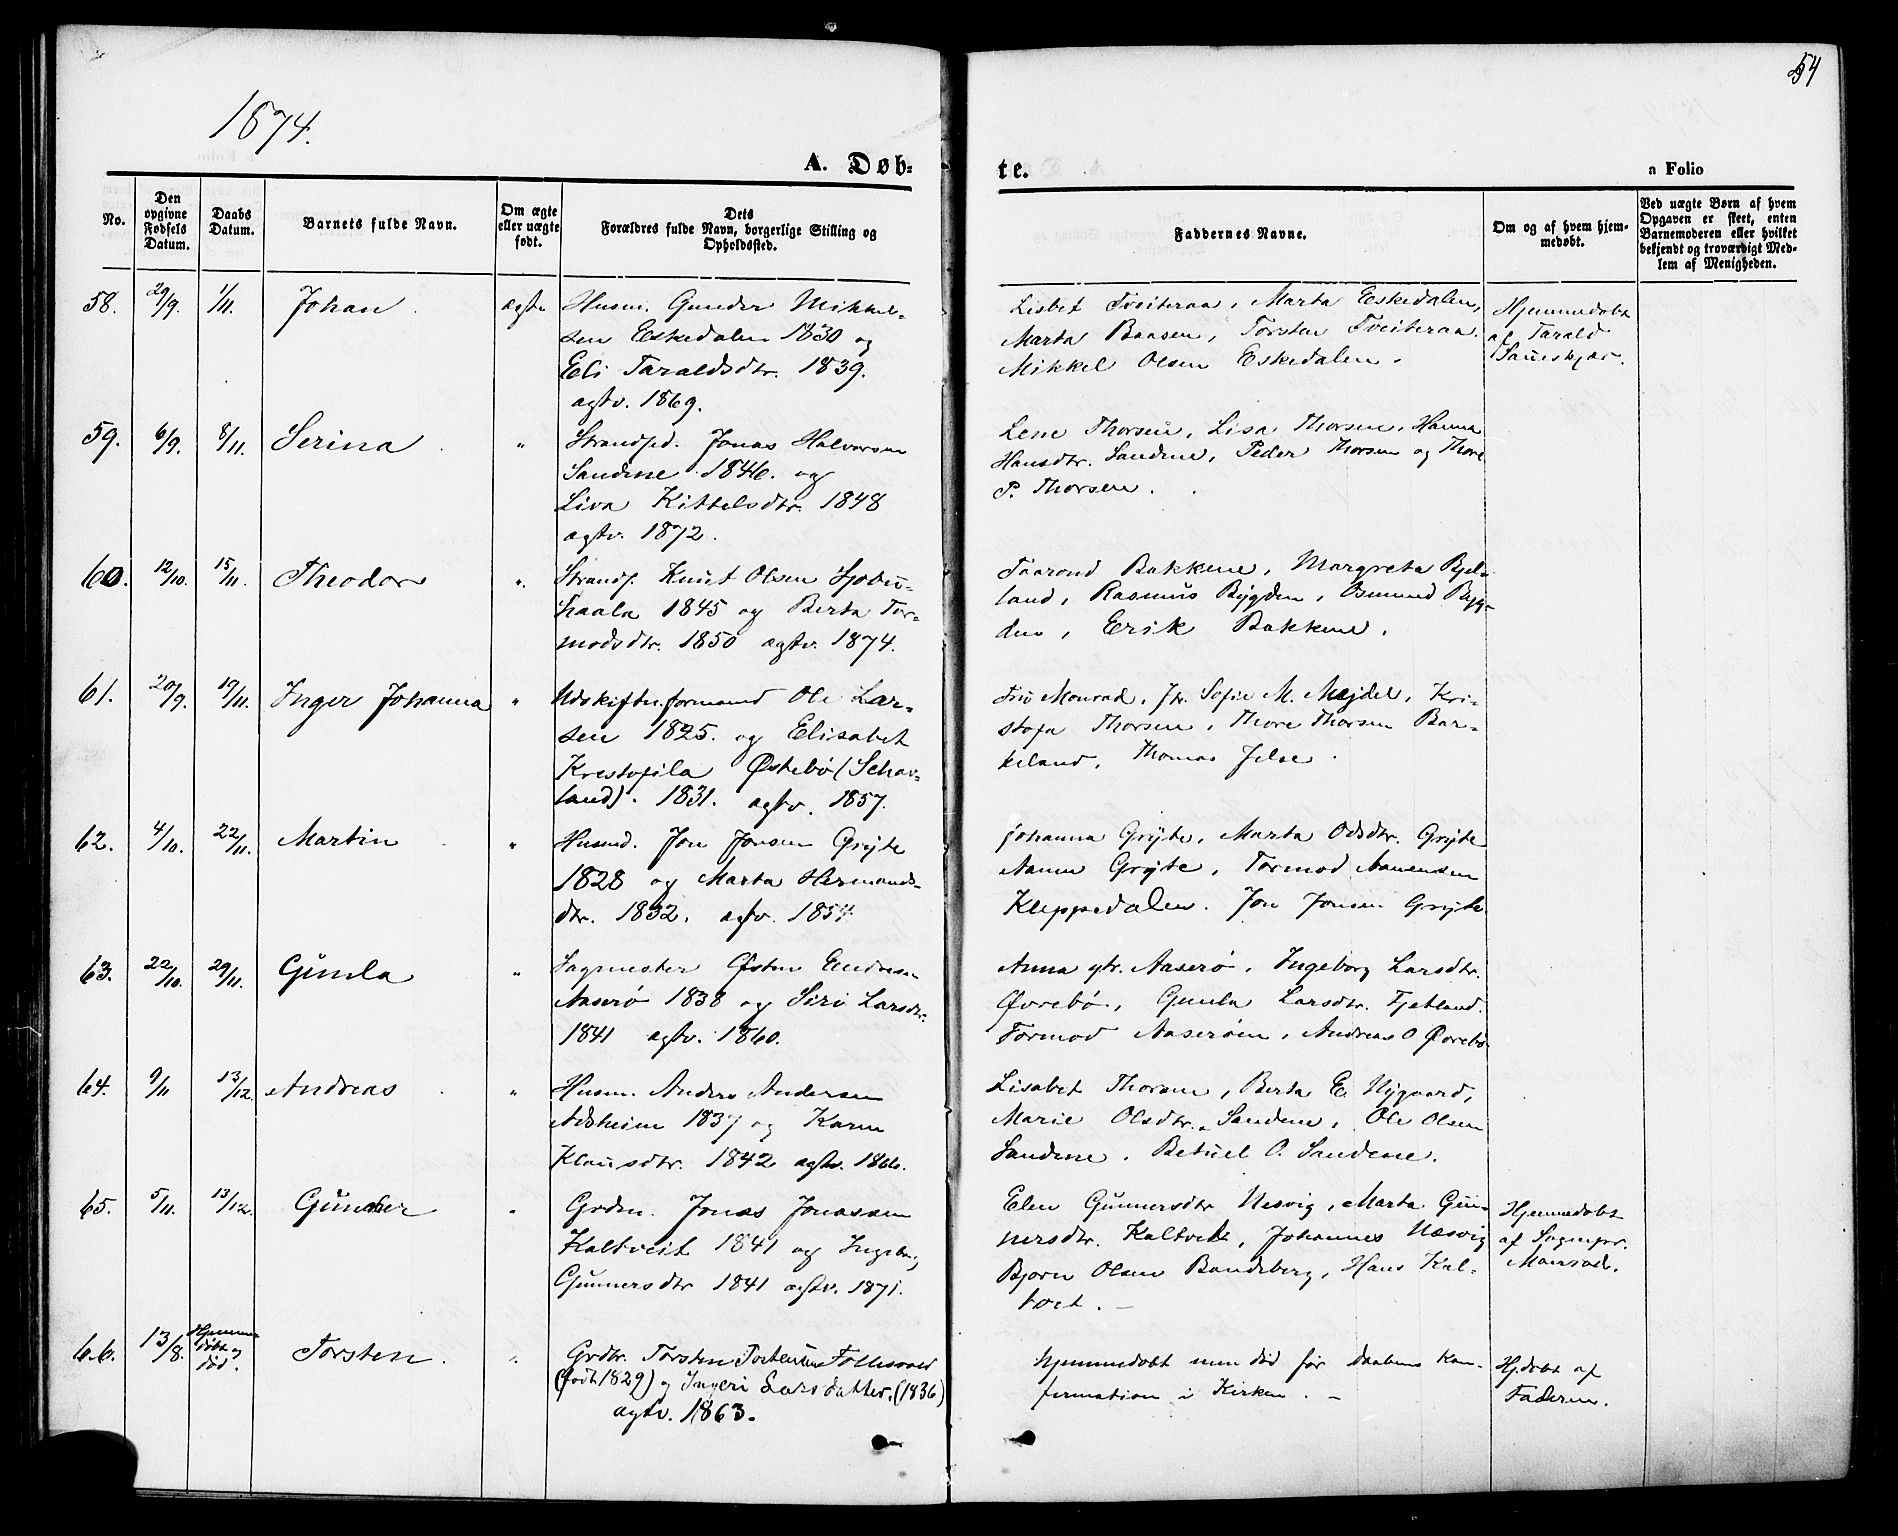 54
1874.
A. Døb-
te.
a Folio
No.
Den opgivne Fødsels Datum.
Daabs Datum.
Barnets fulde Navn.
Om ægte eller uægte født.
Dets Forældres fulde Navn, borgerlige Stilling og Opholdssted.
Faddernes Navne.
Om og af hvem hjemmedøbt.
Ved uægte Børn af hvem Opgaven er skeet, enten Barnemoderen eller hvilket bekjendt og troværdigt Medlem af Menigheden.
58. 29/9. 1/11. Johan ægte
Husm. Gunder Mikkel-
sen Eskedalen 1830 og
Eli Taraldsdtr. 1839.
ægtv. 1869.
Lisbet Tveiteraa, Marta Eskedalen,
Marta Baasen, Torsten Tveiteraa.
Mikkel Olsen Eskedalen.
Hjemmedøbt
af Tarald
59. 6/9. 8/11. Serina "
Strandsd. Jonas Halvorsen
Sandene 1846. og
Liva Kittelsdtr. 1848
ægtv. 1872.
Lene Thorsen, Lisa Thorsen, Hanna
Hansdtr. Sandene, Peder Thorsen og Thore
P. Thorsen.
60. 12/10. 15/11. Theodor "
Strands. Knut Olsen
1845 og Berta Tor-
modsdtr. 1850 ægtv. 1874.
Taarond Bakkene, Margreta Bjel-
land, Rasmus Bygden, Osmund Byg-
den, Erik Bakkene.
61. 20/9. 19/11. Inger Johanna "
Udskiftn.formand Ole Lar-
sen 1825. og Elisabet
Krestofila Østebø (Schav-
land). 1831. ægtv. 1857.
Fru Monrad, Fr. Sofie M. Mejdel, Kri-
stofa Thorsen, Thore Thorsen Bar-
keland, Thomas Jelse.
62. 4/10. 22/11. Martin "
Husmd. Jon Jonsen Gryte
1828 og Marta Hermands-
dtr. 1832. ægtv. 1854.
Johanna Gryte, Marta Odsdtr. Gryte
Aanen Gryte, Tormod Aanensen
Kleppedalen. Jon Jonsen Gryte
63. 22/10. 29/11. Gunla "
Sagmester Østen Endresen
Aaserø 1838 og Siri Larsdtr.
1841 ægtv. 1860.
Anna gtr. Aaserø, Ingeborg Larsdtr.
Øvrebø, Gunla Larsdtr. Fjetland.
Tormod Aaserøen, Andreas O Øvrebø
64. 9/11 13/12 Andreas "
Husm. Anders Andersen
Adsheim 1837 og Karen
Klausdtr. 1842 ægtv. 1866.
Lisabet Thorsen, Berta E. Nygaard,
Marie Olsdtr. Sandene, Ole Olsen
Sandene, Betuel O. Sandene.
65. 5/11. 13/12. Gunder "
Grdm. Jonas Jonassen
Kaltveit 1841 og Ingeb.
Gunnersdtr 1841 ægtv. 1871.
Elen Gunnersdtr Nesvig, Marta Gun-
nersdtr. Kaltveit, Johannes Næsvig
Bjørn Olsen Bandeberg, Hans Kal-
tvet. –
Hjemmedøbt
af Sognepr.
Monrad.
66. 13/8. Hjemme-
døbt og
død. Torsten "
Grdbr. Torsten Torstensen Follesvold
(født 1829) og Ingeri Larsdatter, (1836)
ægtv. 1863.
Hjemmedøbt men død før Daabens Kon-
firmation i Kirken. –
Hjdøbt af
Faderen.